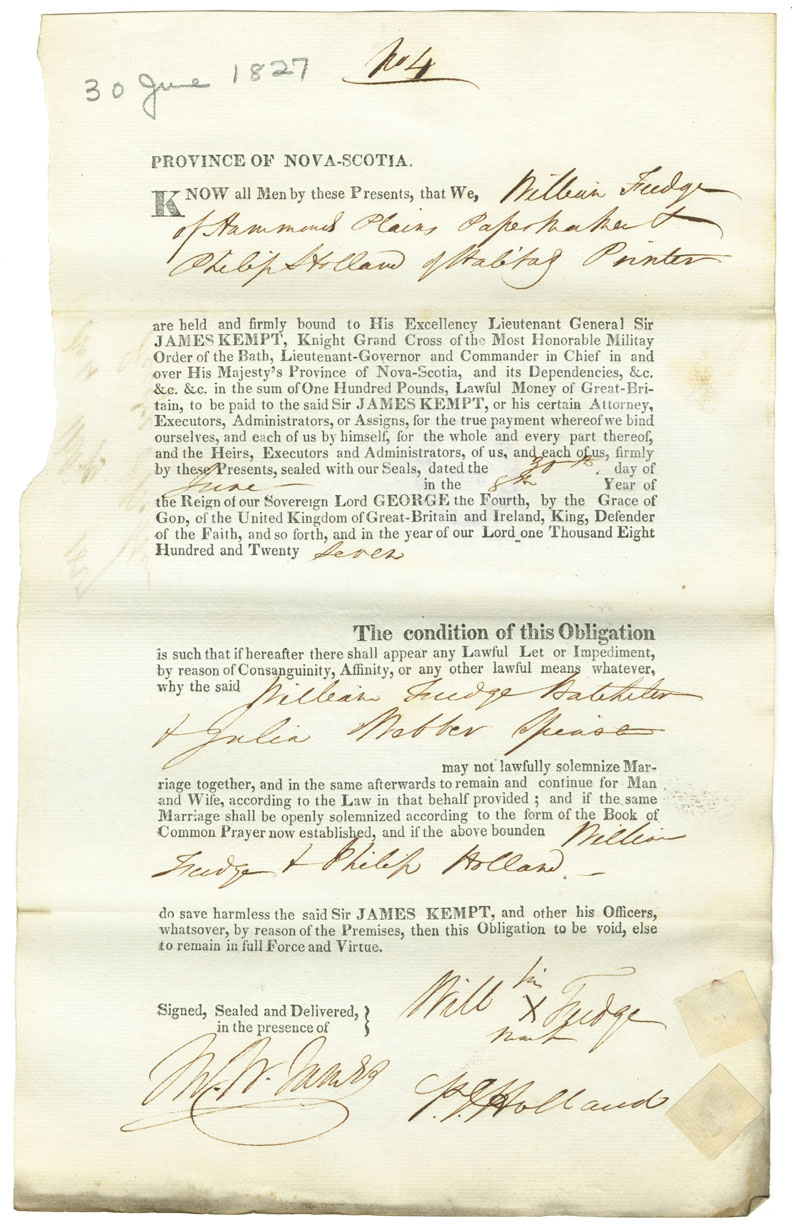 30 June 1827
No 4
PROVINCE OF NOVA-SCOTIA.
KNOW all Men by these Presents, that We, William Fudge
of Hammonds Plains Papermaker &
Philip J Holland of Halifax Printer
are held and firmly bound to His Excellency Lieutenant General Sir
JAMES KEMPT, Knight Grand Cross of the Most Honorable Militay
Order of the Bath, Lieutenant-Governor and Commander in Chief in and
over His Majesty's Province of Nova-Scotia, and its Dependencies, &c.
&c. &c. in the sum of One Hundred Pounds, Lawful Money of Great-Bri-
tain, to be paid to the said Sir JAMES KEMPT, or his certain Attorney,
Executors, Administrators, or Assigns, for the true payment whereof we bind
ourselves, and each of us by himself, for the whole and every part thereof,
and the Heirs, Executors and Administrators, of us, and each of us, firmly
by these Presents, sealed with our Seals, dated the 30th. day of
June in the 8th Year of
the Reign of our Sovereign Lord GEORGE the Fourth, by the Grace of
GOD, of the United Kingdom of Great-Britain and Ireland, King, Defender
of the Faith, and so forth, and in the year of our Lord one Thousand Eight
Hundred and Twenty Seven
The condition of this Obligation
is such that if hereafter there shall appear any Lawful Let or Impediment,
by reason of Consanguinity, Affinity, or any other lawful means whatever,
why the said William Fudge Batcheler
& Julia Webber Spinster
may not lawfully solemnize Mar-
riage together, and in the same afterwards to remain and continue for Man
and Wife, according to the Law in that behalf provided ; and if the same
Marriage shall be openly solemnized according to the form of the Book of
Common Prayer now established, and if the above bounden William
Fudge & Philip Holland. –
do save harmless the said Sir JAMES KEMPT, and other his Officers,
whatsover, by reason of the Premises, then this Obligation to be void, else
to remain in full Force and Virtue.
Signed, Sealed and Delivered,
in the presence of
his
Will X Fudge
mark
P. J Holland